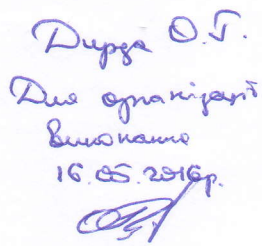 Дирда О.Г.
Для організації
виконання
16.05.2016р.